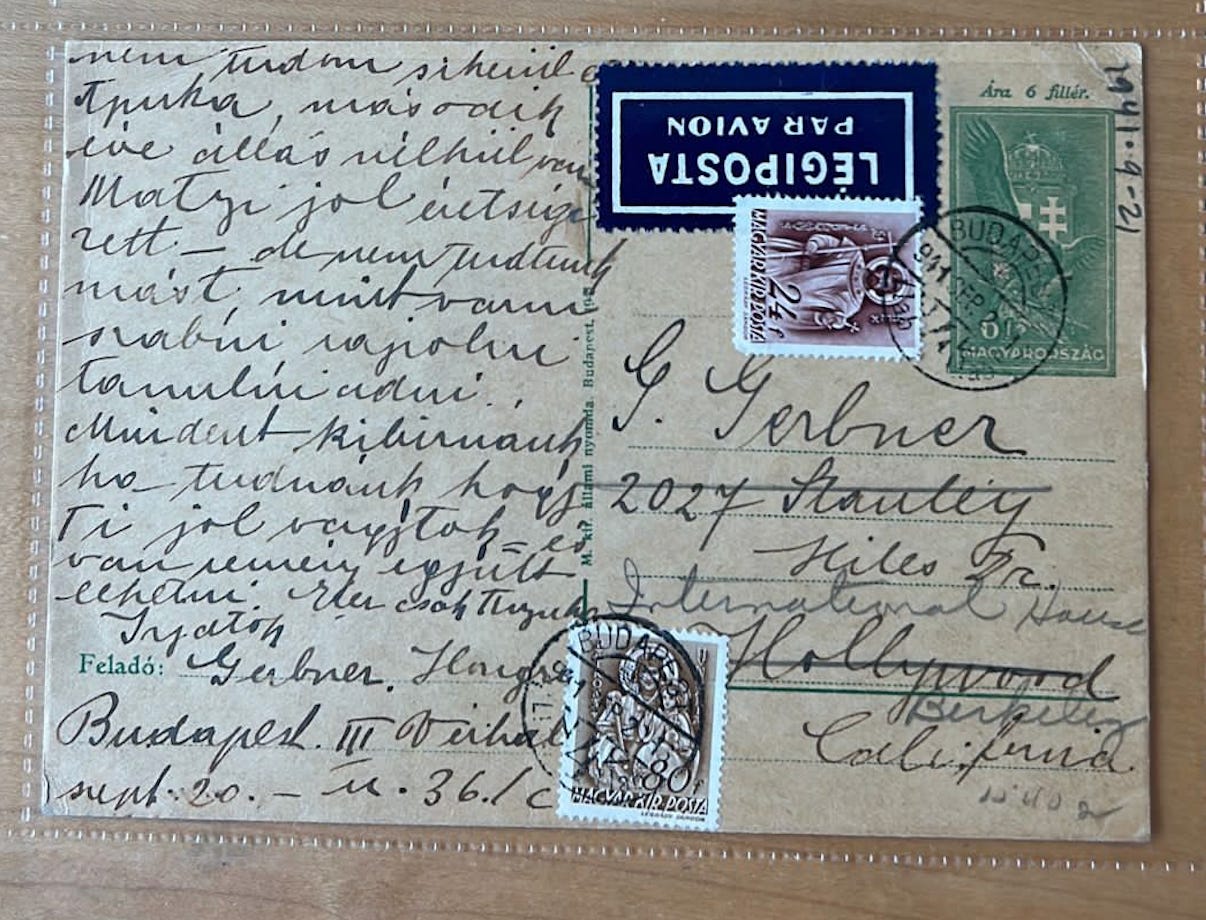 nem tudom sikerül e
Apuka, második
éve állás nélkül van
Matyi jol éretségi
zett – de nem tudtunk
mást, mint varni
szabni rajzolni
tanulni adni.
Mindent kibirnánk
ha tudnánk hogy
Ti jol vagytok – és
van remény együtt
lehetni. Eler csak
Irjatok
Feladó: Gerbner, Hongrie
Budapest. III Vérhal
sept. 20. – u. 36./c
M. kir. állami nyomda. Budapest.
LÉGIPOSTA
PAR AVION
Ára 6 fillér.
1941-9-21
MAGYAR KIR. POSTA
24 f
BUDAPEST
941 SEP. 21
6 f
MAGYARORSZÁG
G. Gerbner
2027 Stanley
Hiles Tr.
International House
Hollywood
Berkeley
California
BUDAPEST
80 f
MAGYAR KIR. POSTA
LÉGRÁDY SÁNDOR